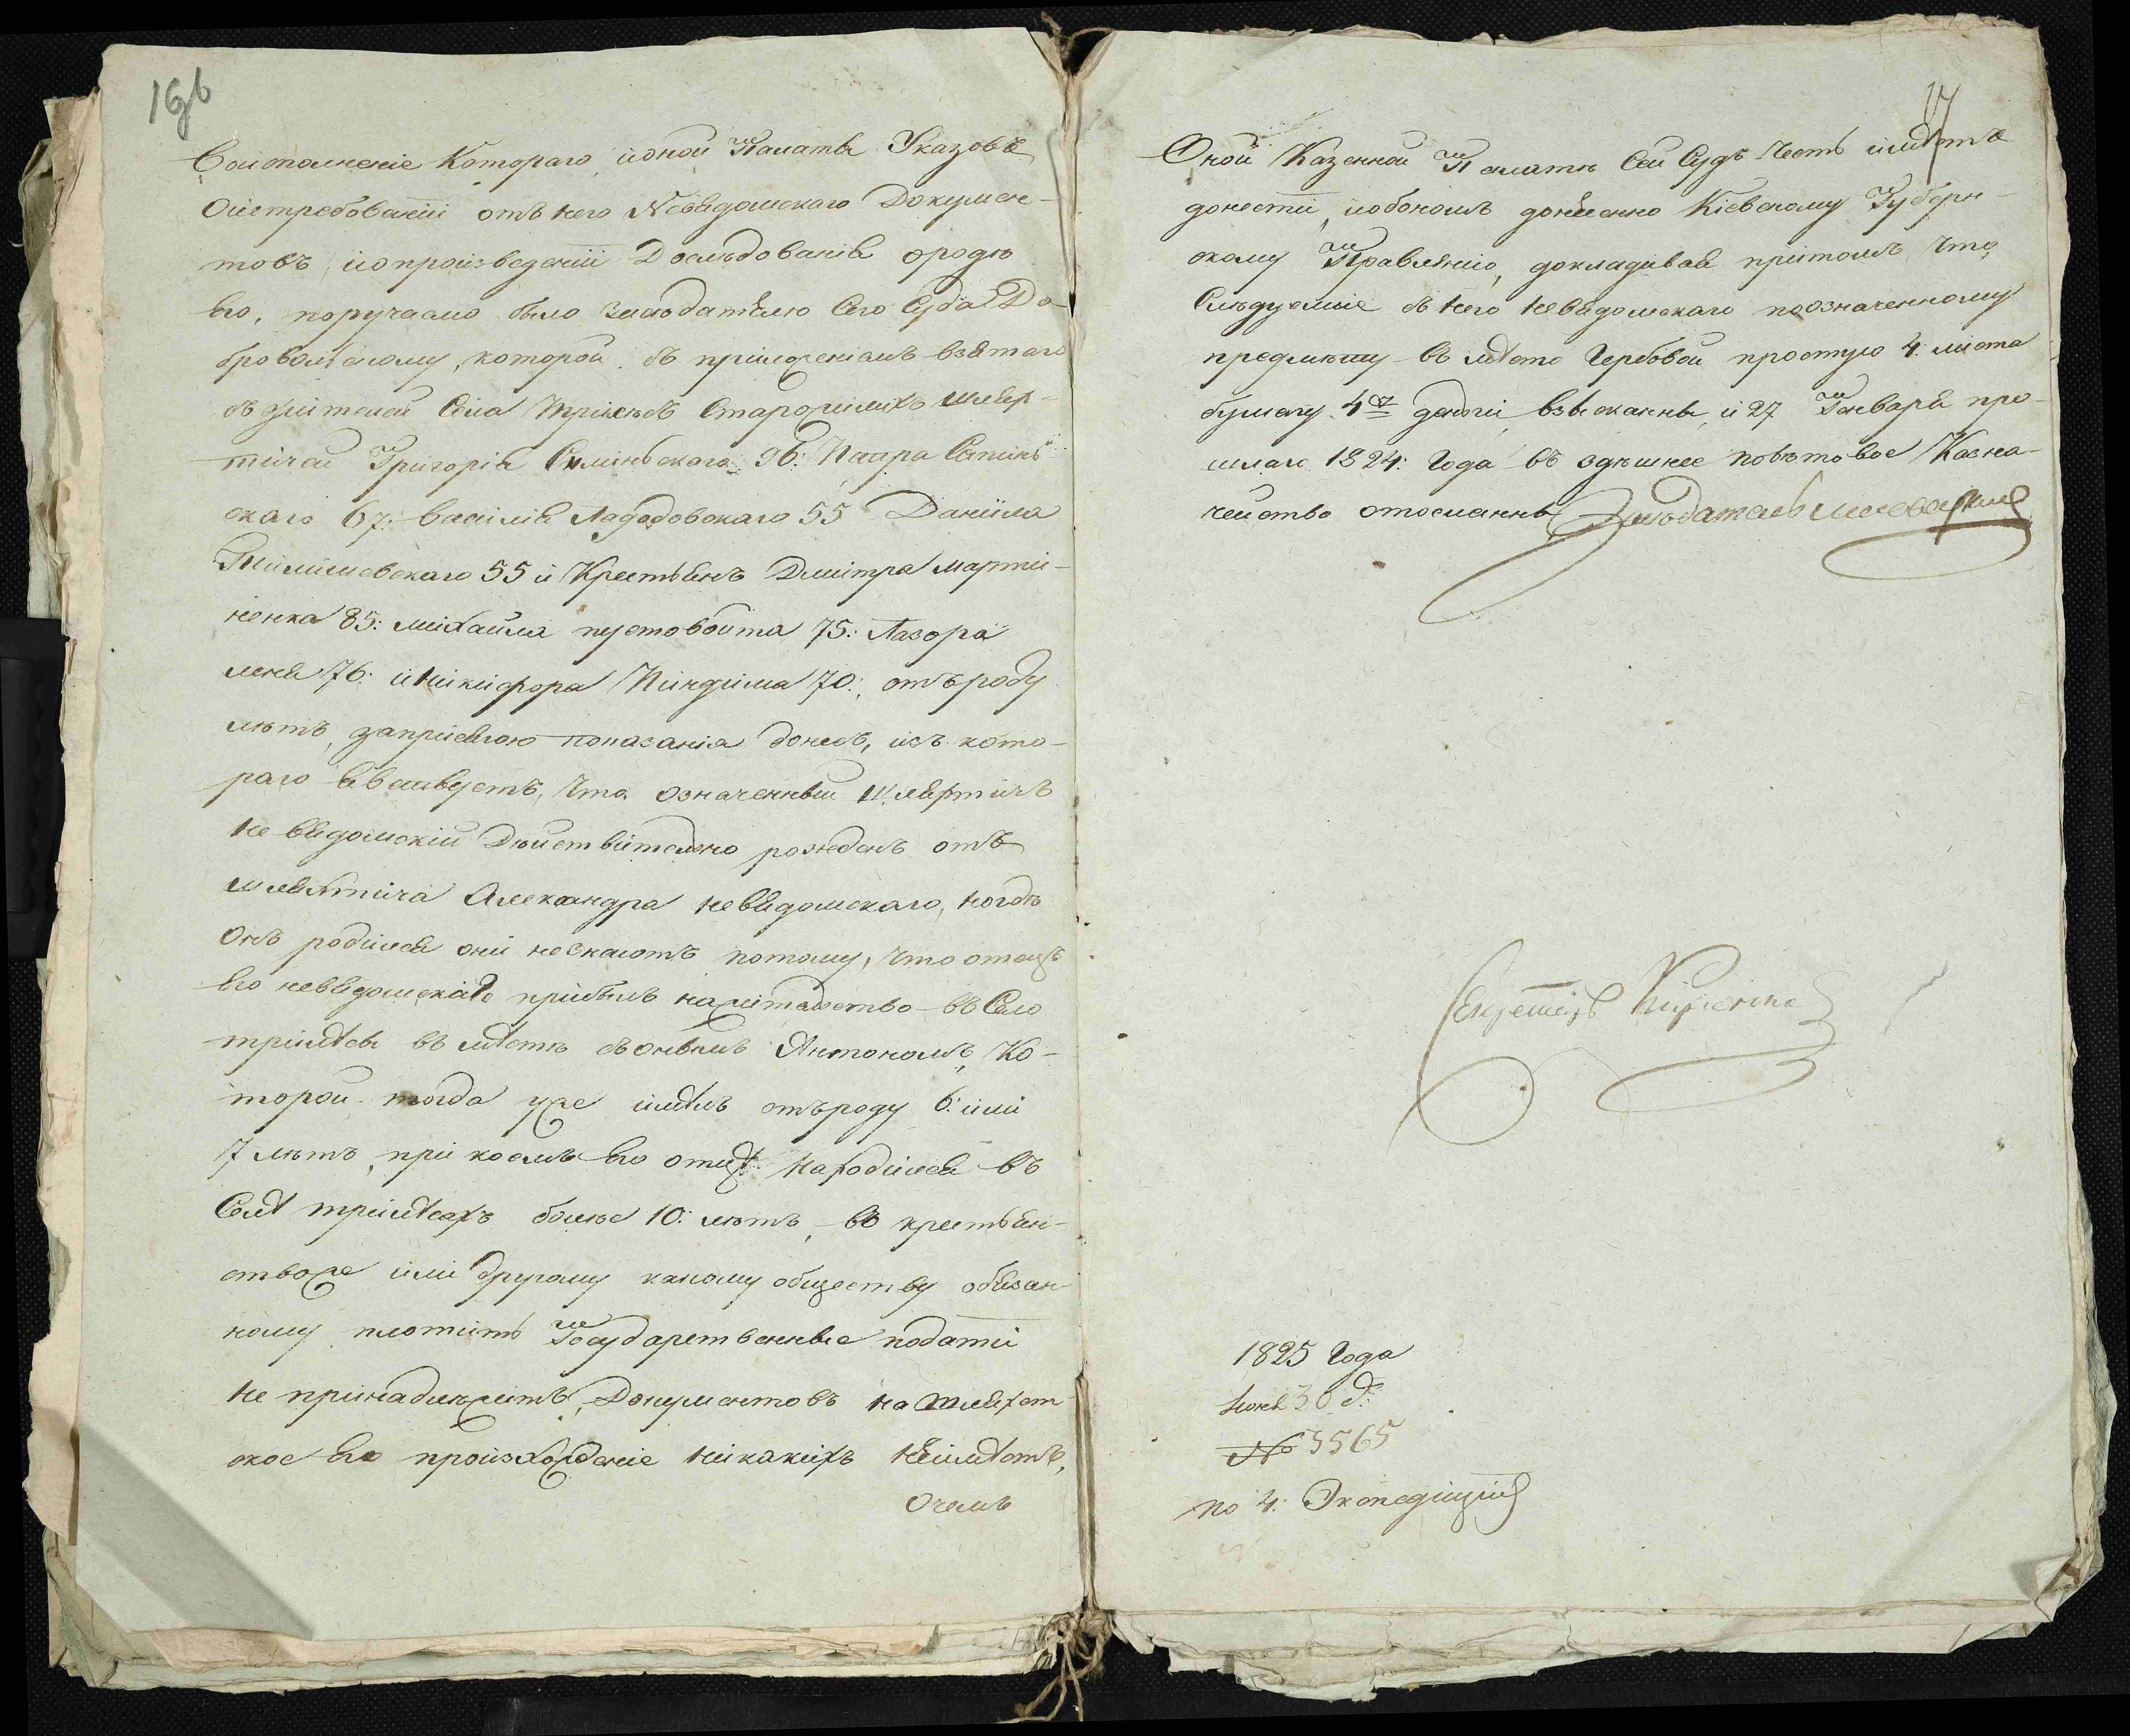 16б
Воисполнение Котораго, ионой Палаты Указовъ
Оистребовании отъ него Невядомскаго Докумен-
товъ, иопроизведении Дослѣдования ородѣ
Его, поручаемо было Засѣдателю Сего Суда До-
бровольскому, которой съ приложениемъ взятаго
съ жителей Села Трилѣсъ Старожилихъ шлях-
тичей Григория 96: Петра
скаго 67: Василия 55 Даниила
55 и Крестьянъ Дмитра Марти-
ненка 85: Михайла Пустовойта 75: Лазоря
76: и Никифора 70: отъ роду
лѣтъ, заприсягою показания донесъ, изъ кото-
раго явствуетъ, Что означенный Шляхтичъ
Невядомский Дѣйствительно рожденъ отъ
шляхтича Александра Невядомскаго, ногдѣ
Онъ родился они незнаютъ потому, что отецъ
Его Невядомский прибылъ нажительство въ Село
Трилѣсы въ мѣстѣ сонымъ Антономъ, Ко-
торой тогда уже имѣлъ отъроду 6: или
7 лѣтъ, при коемъ Его отцѣ находился въ
Селѣ Трилѣсахъ болѣе 10: лѣтъ, въ крестьян-
ствоже или другому какому обществу обязан-
ному платить Государственные подати
Не принадлежитъ, Документовъ на шляхет-
ское Его произхождение никакихъ Неимѣетъ,
Очемъ
17
Оной Казенной Палатѣ Сей Судъ Честь имѣетъ
донести, иобономъ донесенно Киевскому Губерн-
скому Правлению, докладивая притомъ, что
Слѣдуемые съ Него Невядомскаго поозначенному
предмѣту въ мѣсто Гербовой простую 4: листа
бумагу 4 денги взысканны, и 27 Генваря про-
шлаго 1824: Года въ здѣшнее повѣтовое Казна-
чейство отосланны Засѣдатель
Секретарь
1825 Года
Июня 30 д:
№ 3565
по 4: Экспедиции